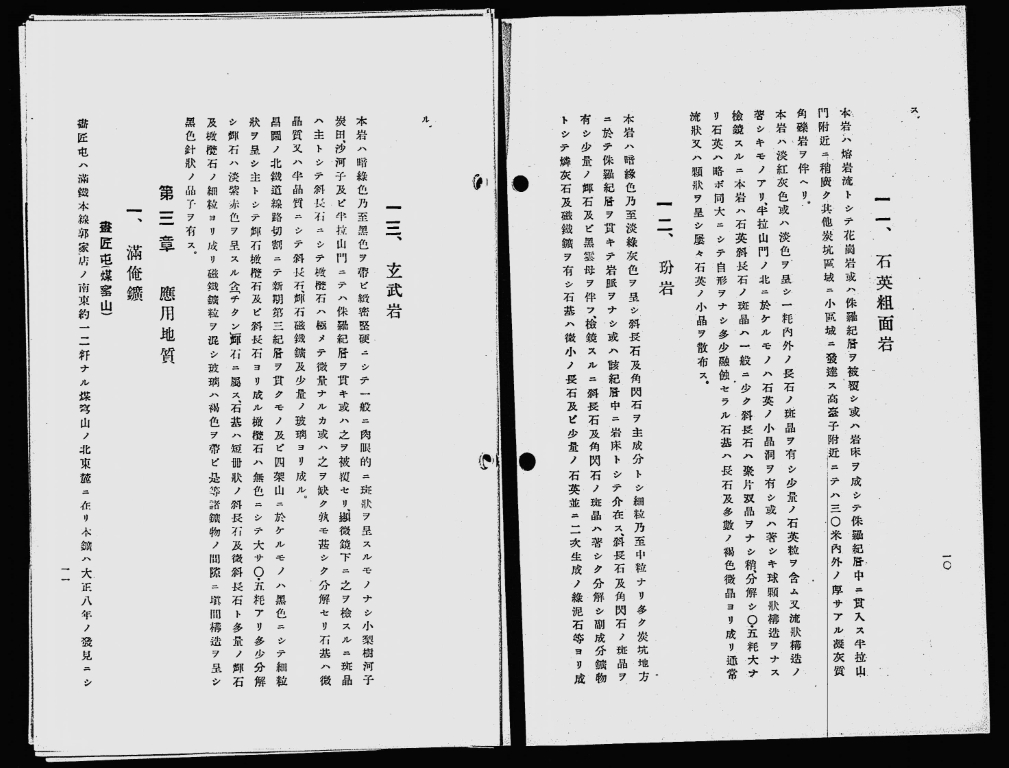 ス、
一一、石英粗面岩
本岩ハ熔岩流トシテ花崗岩或ハ侏羅紀層ヲ被覆シ或ハ岩床ヲ成シテ侏羅紀層中ニ貫入ス半拉山
門附近ニ稍廣ク其他炭坑區域ニ小區域ニ發達ス高臺子附近ニテハ三〇米內外ノ厚サアル凝灰質
角礫岩ヲ伴ヘリ。
本岩ハ淡紅灰色或ハ淡色ヲ呈シ一粍內外ノ長石ノ斑晶ヲ有シ少量ノ石英粒ヲ含ム又流狀構造ノ
著シキモノアリ、半拉山門ノ北ニ於ケルモノハ石英ノ小晶洞ヲ有シ或ハ著シキ球顆狀構造ヲナス
檢鏡スルニ本岩ハ石英斜長石ノ斑晶ハ一般ニ少ク斜長石ハ聚片双晶ヲナシ稍分解シ〇・五粍大ナ
リ石英ハ略ボ同大ニシテ自形ヲナシ多少融蝕セラル石基ハ長石及多數ノ褐色微晶ヨリ成リ通常
流狀又ハ顆狀ヲ呈シ屢々石英ノ小晶ヲ散布ス。
一二、玢岩
本岩ハ暗綠色乃至淡綠灰色ヲ呈シ斜長石及角閃石ヲ主成分トシ細粒乃至中粒ナリ多ク炭坑地方
ニ於テ侏羅紀層ヲ貫キテ岩脈ヲナシ或ハ該紀層中ニ岩床トシテ介在ス、斜長石及角閃石ノ斑晶ヲ
有シ少量ノ輝石及ビ黑雲母ヲ伴フ、檢鏡スルニ斜長石及角閃石ノ斑晶ハ著シク分解シ副成分鑛物
トシテ燐灰石及磁鐵鑛ヲ有シ石基ハ微小ノ長石及ビ少量ノ石英並ニ二次生成ノ綠泥石等ヨリ成
一〇
ル。
一三、玄武岩
本岩ハ暗綠色乃至黑色ヲ帶ビ緻密堅硬ニシテ一般ニ肉眼的ニ斑狀ヲ呈スルモノナシ小梨樹河子
炭田沙河子及ビ半拉山門ニテハ侏羅紀層ヲ貫キ或ハ之ヲ被覆セリ顯微鏡下ニ之ヲ檢スルニ斑晶
ハ主トシテ斜長石ニシテ橄欖石ハ極メテ微量ナルカ或ハ之ヲ缺ク孰モ甚シク分解セリ石基ハ微
晶質又ハ半晶質ニシテ斜長石輝石磁鐵鑛及少量ノ玻璃ヨリ成ル。
昌圖ノ北鐵道線路切割ニテ新期第三紀層ヲ貫クモノ及ビ四架山ニ於ケルモノハ黑色ニシテ細粒
狀ヲ呈シ主トシテ輝石橄欖石及ビ斜長石ヨリ成ル橄欖石ハ無色ニシテ大サ〇・五粍アリ多少分解
シ輝石ハ淡紫赤色ヲ呈スル含チタン輝石ニ屬ス、石基ハ短册狀ノ斜長石及微斜長石ト多量ノ輝石
及橄欖石ノ細粒ヨリ成リ磁鐵鑛粒ヲ混シ玻璃ハ褐色ヲ帶ビ是等諸鑛物ノ間隙ニ塡間構造ヲ呈シ
黑色針狀ノ晶子ヲ有ス。
第三章 應用地質
一、滿俺鑛
畫匠屯(煤窰山)
畫匠屯ハ滿鐵本線郭家店ノ南東約一二粁ナル煤窰山ノ北東麓ニ在リ本鑛ハ大正八年ノ發見ニシ
一一